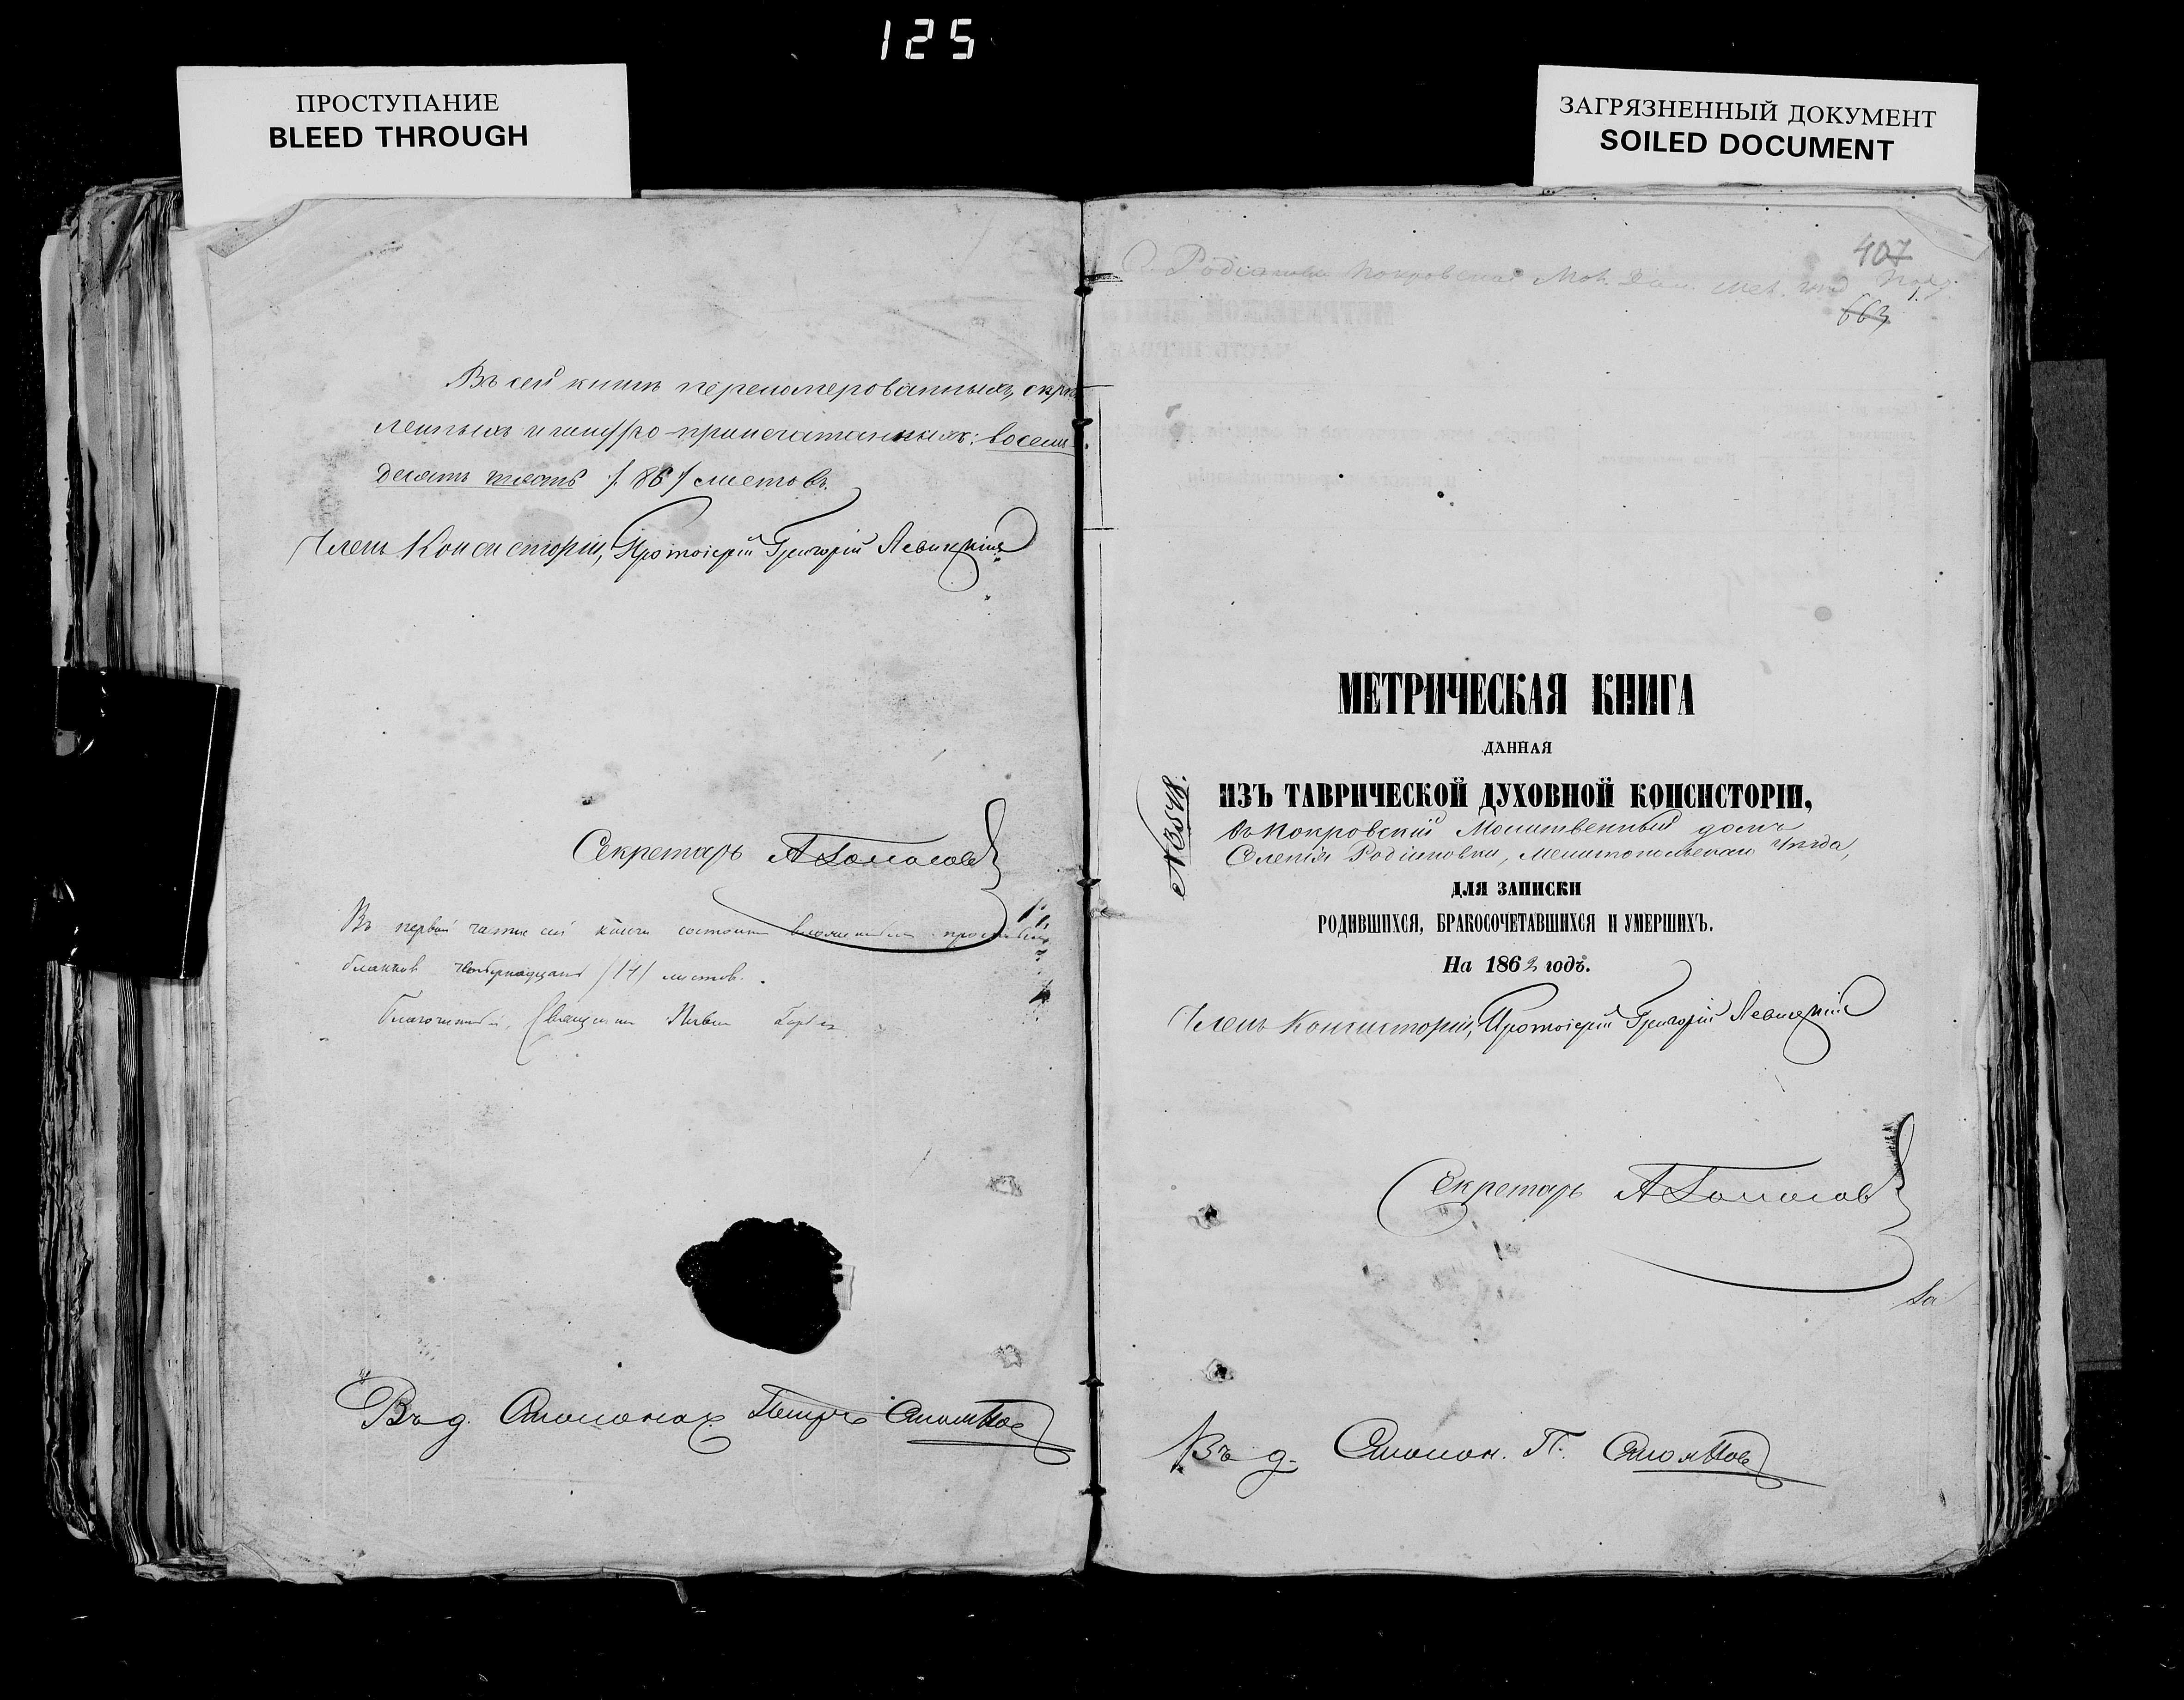 125
ПРОСТУПАНИЕ
BLEED THROUGH
ЗАГРЯЗНЕННЫЙ ДОКУМЕНТ
SOILED DOCUMENT
Въ сей книгѣ перенумерованныхъ, скрѣп
ленныхъ и шнуро-припечатанныхъ: восемь
десятъ шесть /86/ листовъ.
Членъ Консисторіи, Протоіерей Григорій Левицкій
Секретарь
Въ первой части сей книги состоитъ
бланковъ четырнадцать /14/ листовъ.
Благочинный, Священникъ
Въ д. Столонач. Петръ
407
663
МЕТРИЧЕСКАЯ КНИГА
ДАННАЯ
ИЗЪ ТАВРИЧЕСКОЙ ДУХОВНОЙ КОНСИСТОРІИ,
въ Покровскій Молитвенный домъ
Селенія Родіоновки, Мелитопольскаго уѣзда,
№ 3548.
ДЛЯ ЗАПИСКИ
РОДИВШИХСЯ, БРАКОСОЧЕТАВШИХСЯ И УМЕРШИХЪ.
На 1862 годъ.
Членъ Консисторіи, Протоіерей Григорій Левицкій
Секретарь
Въ д. Столон. П.